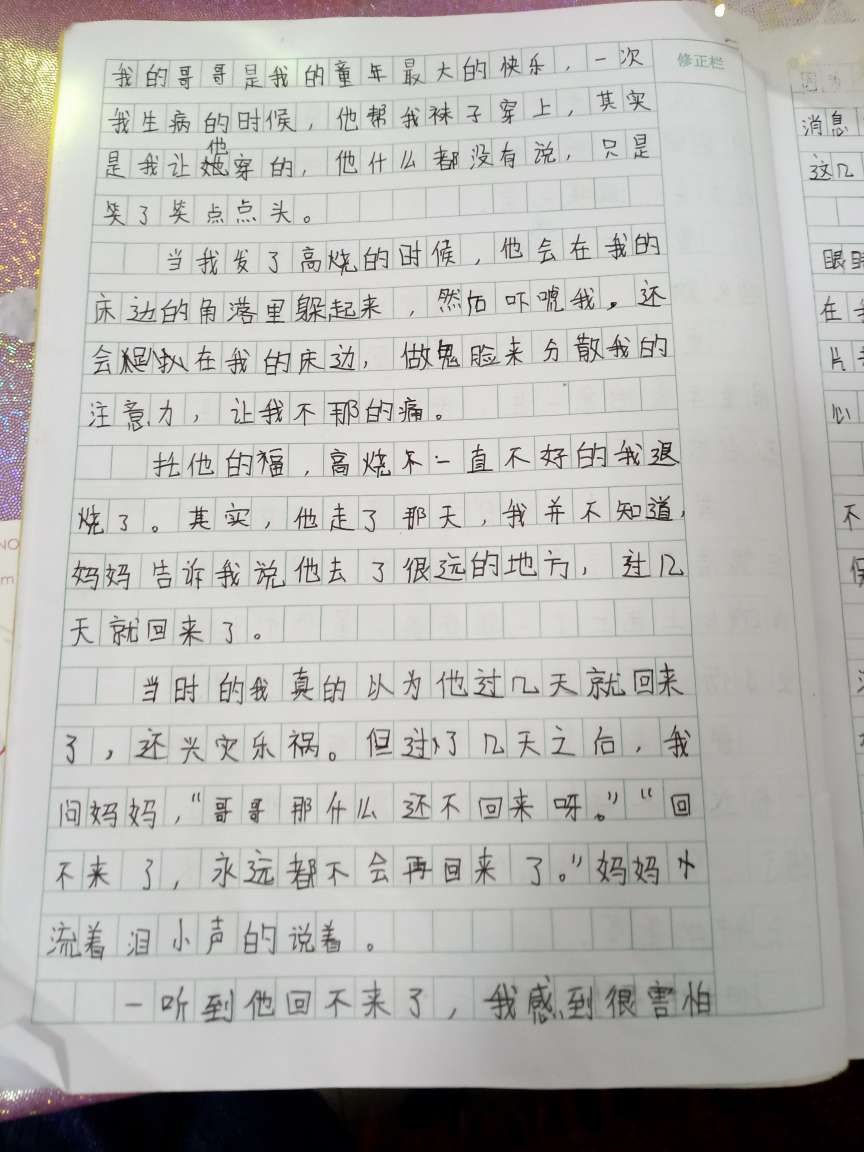 我的哥哥是我的童年最大的快乐，一次
修正栏
我生病的时候，他帮我袜子穿上，其实
是我让他穿的，他什么都没有说，只是
笑了笑点点头。
当我发了高烧的时候，他会在我的
床边的角落里躲起来，然后吓唬我。还
会在我的床边，做鬼脸来分散我的
注意力，让我不那的痛。
托他的福，高烧不一直不好的我退
烧了。其实，他走了那天，我并不知道，
妈妈告诉我说他去了很远的地方，过几
天就回来了。
当时的我真的以为他过几天就回来
了，还兴灾乐祸。但过了几天之后，我
问妈妈，“哥哥那什么还不回来呀。”“回
不来了，永远都不会再回来了。”妈妈小
流着泪小声的说着。
一听到他回不来了，我感到很害怕
消息
这几
眼睛
在我
心
不